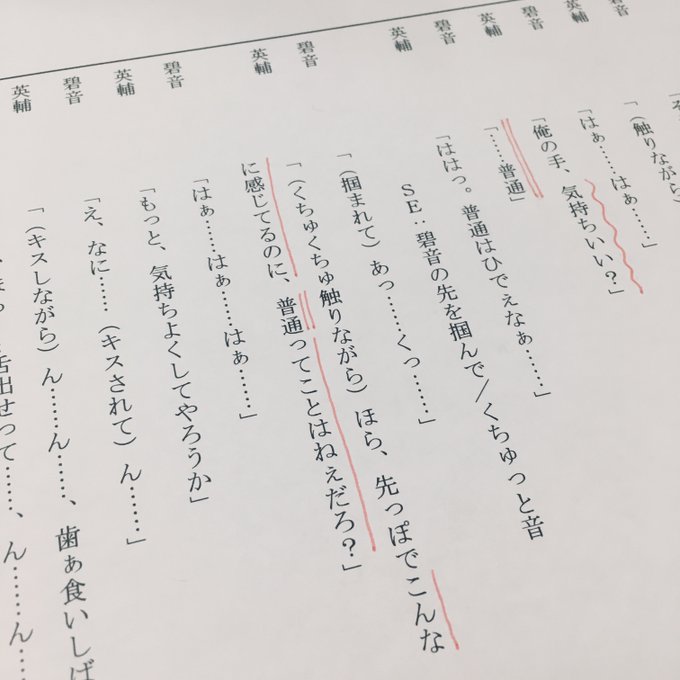 碧音
英輔「（触りながら）
碧音「はぁ……はぁ……」
英輔「俺の手、気持ちいい？」
碧音「……普通」
英輔「ははっ。普通はひでぇなぁ……」
SE：碧音の先を掴んで／くちゅっと音
碧音「（掴まれて）あっ……くっ……」
英輔「（くちゅくちゅ触りながら）ほら、先っぽでこんな
に感じてるのに、普通ってことはねぇだろ？」
碧音「はぁ……はぁ……はぁ……」
英輔「もっと、気持ちよくしてやろうか」
碧音「え、なに……（キスされて）ん……」
英輔「（キスしながら）ん……ん……、歯ぁ食いしば
舌出せって……、ん……ん……